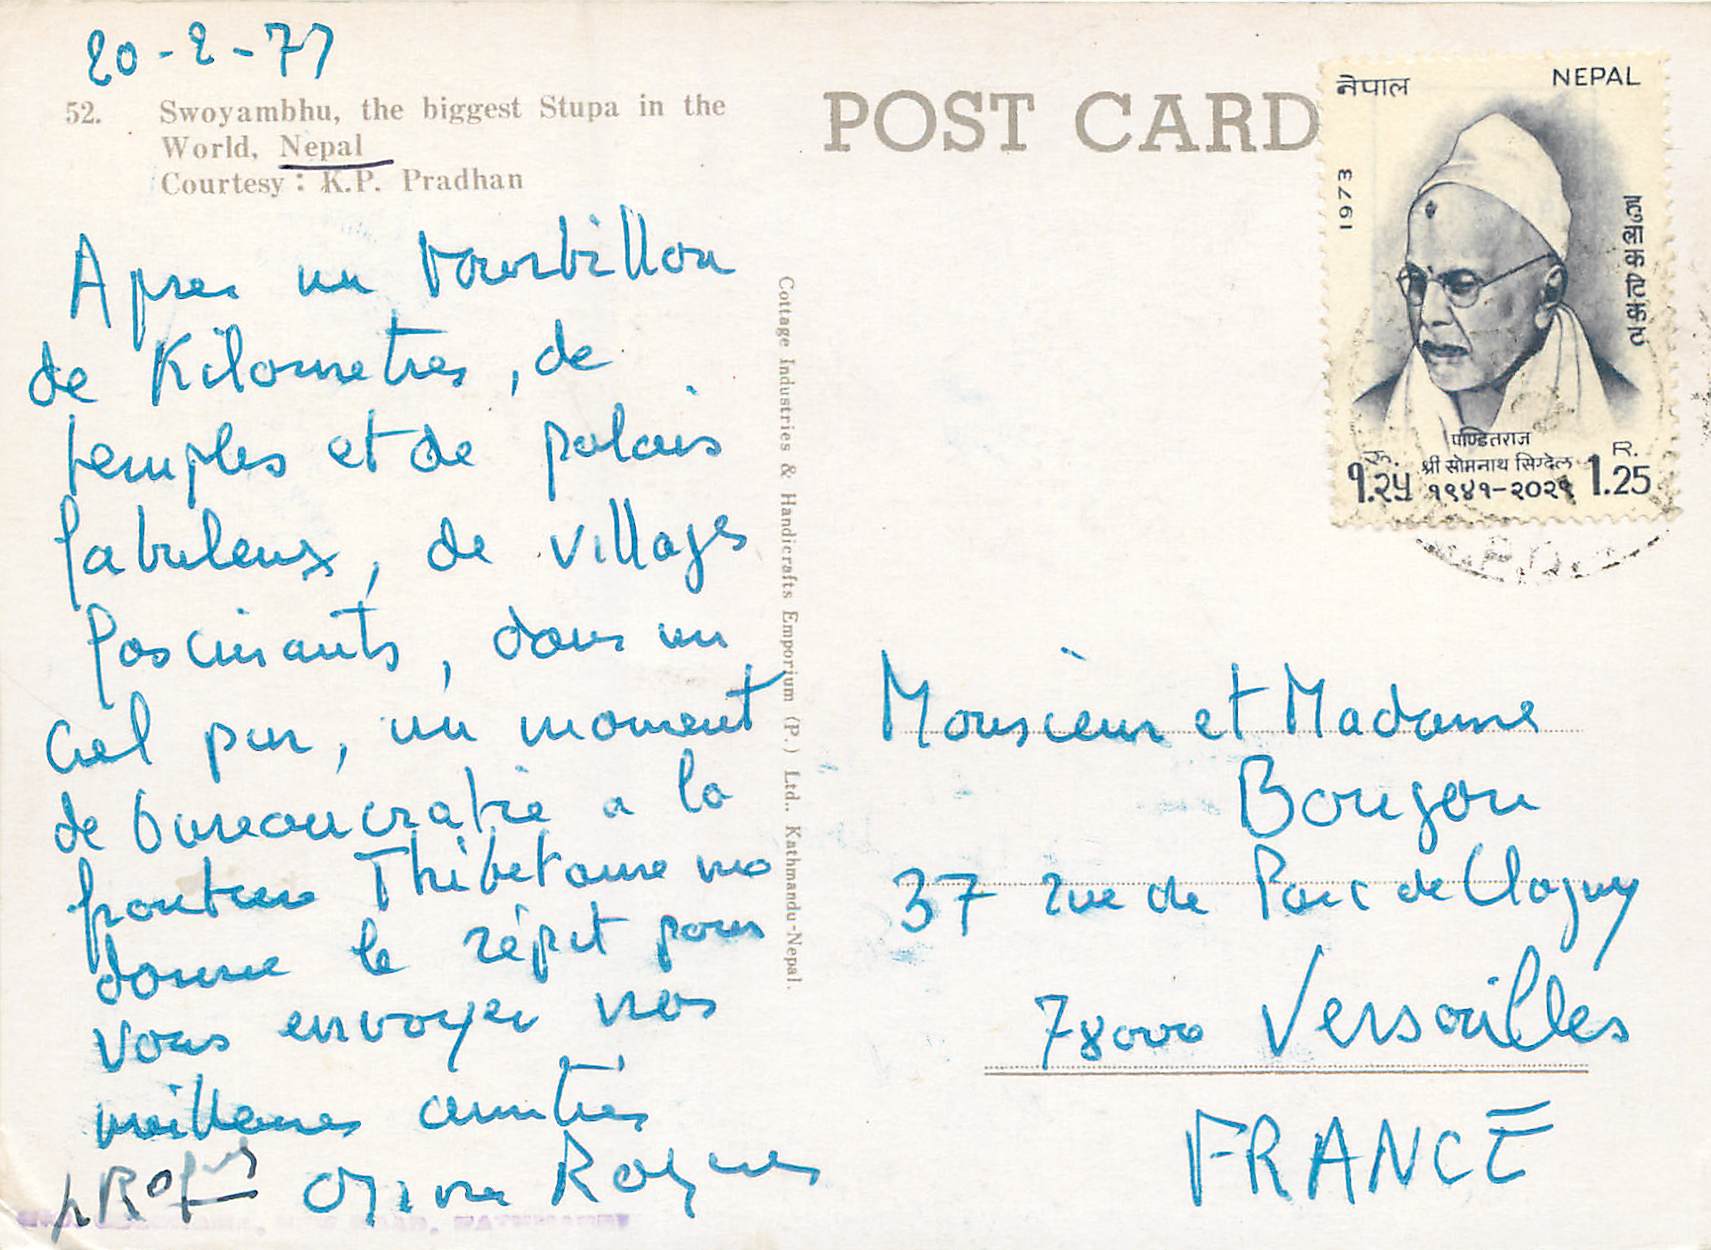 20-2-77
52. Swoyambhu, the biggest Stupa in the
World, Nepal
Courtesy : K.P. Pradhan
Apres un tourbillon
de Kilometres, de
temples et de palais
fabuleux, de villages
fascinants, dans un
ciel pur, un moment
de bureaucratie a la
frontiere Thibetaine me
donne le répit pour
vous envoyer nos
meilleures amitiés
Roques
Cottage Industries & Handicrafts Emporium (P.) Ltd., Kathmandu-Nepal.
POST CARD
नेपाल NEPAL
1973
हुलाक टिकट
पण्डितराज
श्री सोमनाथ सिग्देल
१९४१-२०२९
रु. १.२५
R. 1.25
Monsieur et Madame
Bougon
37 rue de Parc de Clagny
78000 Versailles
FRANCE